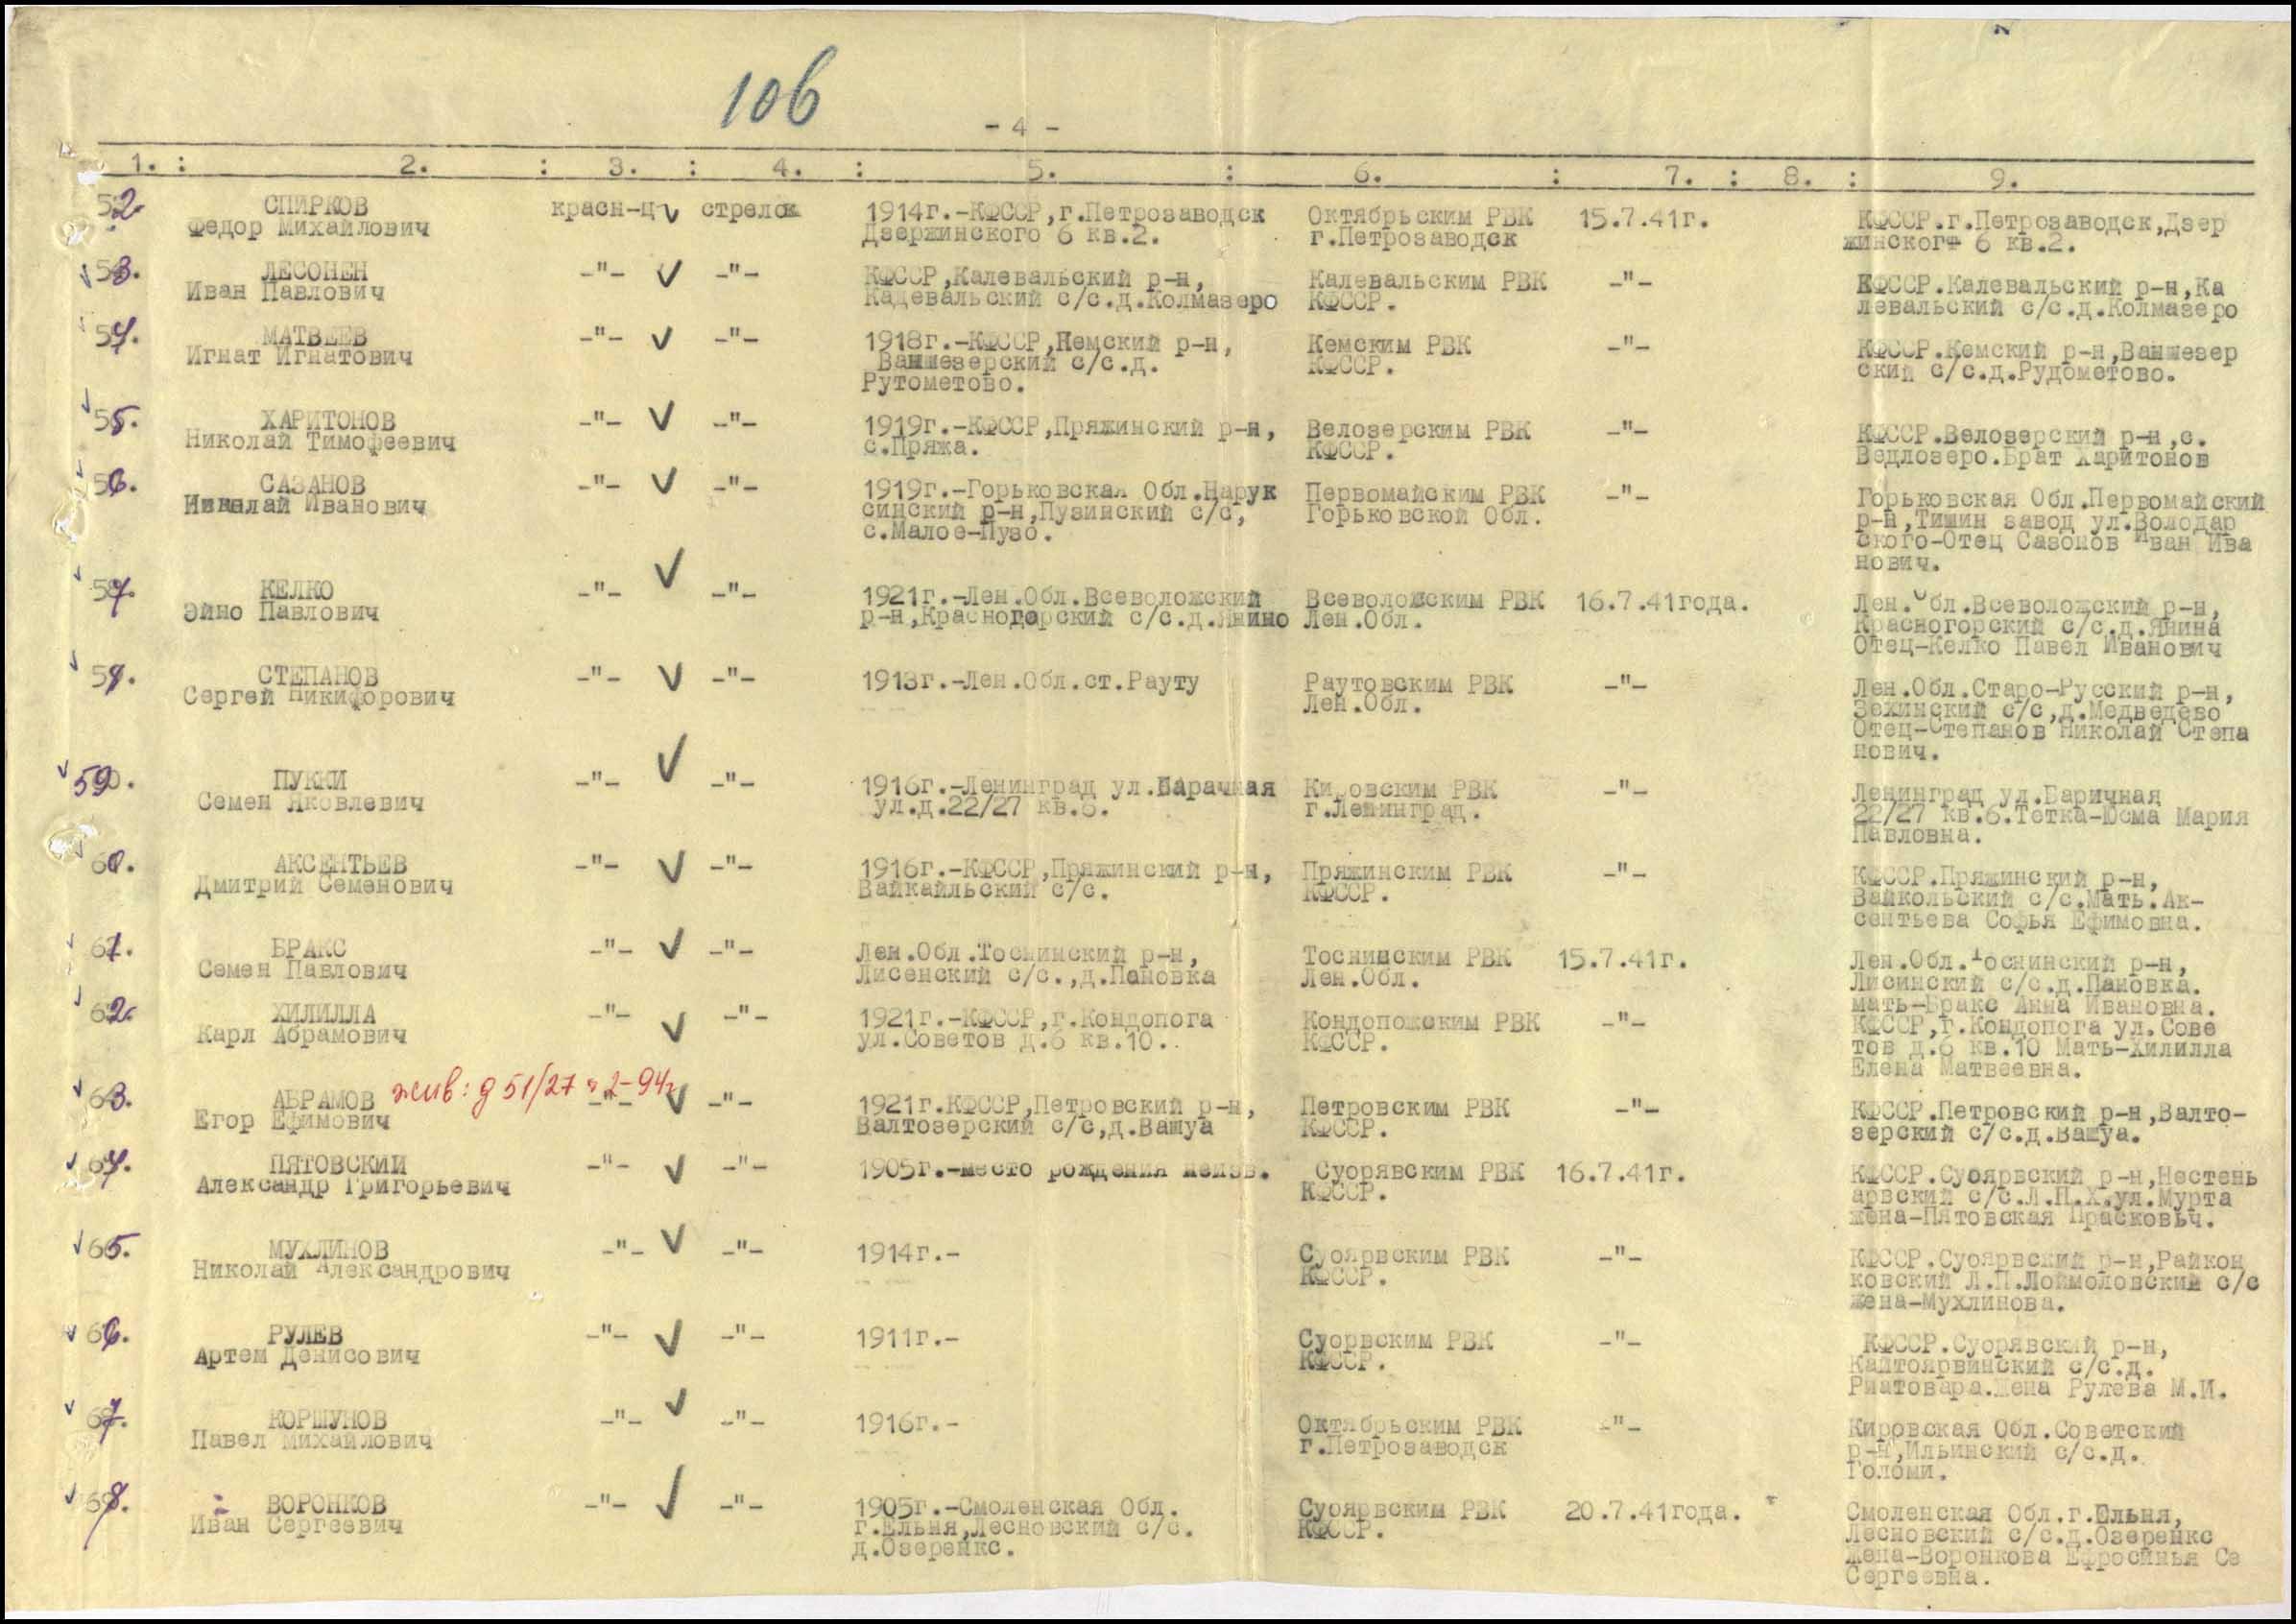 106
- 4 -
1. : 2. : 3. : 4. : 5. : 6. : 7. : 8. : 9.
52. СПИРКОВ красн-ц стрелок 1914г.-КФССР,г.Петрозаводск Октябрьским РВК 15.7.41г. КФССР.г.Петрозаводск,Дзер
Федор Михайлович Дзержинского 6 кв.2. г.Петрозаводск жинского 6 кв.2.
53. ЛЕСОНЕН -"- -"- КФССР,Калевальский р-н, Калевальским РВК -"- КФССР.Калевальский р-н,Ка
Иван Павлович Кадевальский с/с.д.Колмазеро КФССР. левальский с/с.д.Колмазеро
54. МАТВЕЕВ -"- -"- 1918г.-КФССР,Кемский р-н, Кемским РВК -"- КФССР.Кемский р-н,Ваншезер
Игнат Игнатович Ваншезерский с/с.д. КФССР. ский с/с.д.Рудометово.
Рутометово.
55. ХАРИТОНОВ -"- -"- 1919г.-КФССР,Пряжинский р-н, Велозерским РВК -"- КФССР.Велозерский р-н,с.
Николай Тимофеевич с.Пряжа. КФССР. Ведлозеро.Брат Харитонов
56. САЗАНОВ -"- -"- 1919г.-Горьковская Обл.Нарук Первомайским РВК -"- Горьковская Обл.Первомайский
Николай Иванович синский р-н,Пузинский с/с, Горьковской Обл. р-н,Тишин завод ул.Володар
с.Малое-Пузо. ского-Отец Сазонов Иван Ива
нович.
57. КЕЛКО -"- -"- 1921г.-Лен.Обл.Всеволожский Всеволожским РВК 16.7.41года. Лен.Обл.Всеволожский р-н,
Эйно Павлович р-н,Красногорский с/с.д.Янино Лен.Обл. Красногорский с/с.д.Янина
Отец-Келко Павел Иванович
58. СТЕПАНОВ -"- -"- 1913г.-Лен.Обл.ст.Рауту Раутовским РВК -"- Лен.Обл.Старо-Русский р-н,
Сергей Никифорович Лен.Обл. Зехинский с/с,д.Медведево
Отец-Степанов Николай Степа
нович.
59. ПУККИ -"- -"- 1916г.-Ленинград ул.Барачная Кировским РВК -"- Ленинград ул.Баричная
Семен Яковлевич ул.д.22/27 кв.6. г.Ленинград. 22/27 кв.6.Тетка-Юсма Мария
Павловна.
60. АКСЕНТЬЕВ -"- -"- 1916г.-КФССР,Пряжинский р-н, Пряжинским РВК -"- КФССР.Пряжинский р-н,
Дмитрий Семенович Вайкайльский с/с. КФССР. Вайкольский с/с.Мать.Ак-
сентьева Софья Ефимовна.
61. БРАКС -"- -"- Лен.Обл.Тоснинский р-н, Тоснинским РВК 15.7.41г. Лен.Обл.Тоснинский р-н,
Семен Павлович Лисенский с/с.,д.Пановка Лен.Обл. Лисинский с/с.д.Пановка.
мать-Бракс Анна Ивановна.
62. ХИЛИЛЛА -"- -"- 1921г.-КФССР,г.Кондопога Кондопожским РВК -"- КФССР,г.Кондопога ул.Сове
Карл Абрамович ул.Советов д.6 кв.10.. КФССР. тов д.6 кв.10 Мать-Хилилла
Елена Матвеевна.
63. АБРАМОВ жив: д 51/27 -"- -"- 1921г.КФССР,Петровский р-н, Петровским РВК -"- КФССР.Петровский р-н,Валто-
Егор Ефимович Валтозерский с/с,д.Вашуа КФССР. зерский с/с.д.Вашуа.
64. ПЯТОВСКИЙ -"- -"- 1905г.-место рождения неизв. Суорявским РВК 16.7.41г. КФССР.Суоярвский р-н,Нестень
Александр Григорьевич КФССР. арвский с/с.Л.П.Х.ул.Мурта
жена-Пятовская Прасковьч.
65. МУХЛИНОВ -"- -"- 1914г.- Суоярвским РВК -"- КФССР.Суоярвский р-н,Райкон
Николай Александрович КФССР. ковский Л.П.Лоймоловский с/с
жена-Мухлинова.
66. РУЛЕВ -"- -"- 1911г.- Суорвским РВК -"- КФССР.Суорявский р-н,
Артем Денисович КФССР. Кайтоярвинский с/с.д.
Риатовара.Жена Рулева М.И.
67. КОРШУНОВ -"- -"- 1916г.- Октябрьским РВК -"- Кировская Обл.Советский
Павел Михайлович г.Петрозаводск р-н,Ильинский с/с.д.
Голоми.
68. ВОРОНКОВ -"- -"- 1905г.-Смоленская Обл. Суоярвским РВК 20.7.41года. Смоленская Обл.г.Ельня,
Иван Сергеевич г.Ельня,Лесновский с/с. КФССР. Лесновский с/с.д.Озеренкс
д.Озеренкс. жена-Воронкова Ефросинья Се
Сергеевна.